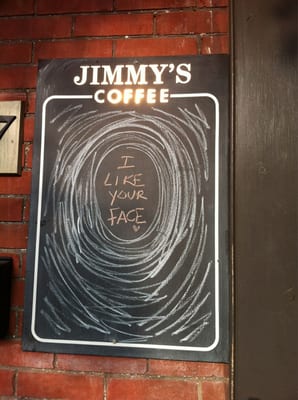 JIMMY'S
COFFEE
I
LIKE
YOUR
FACE
7